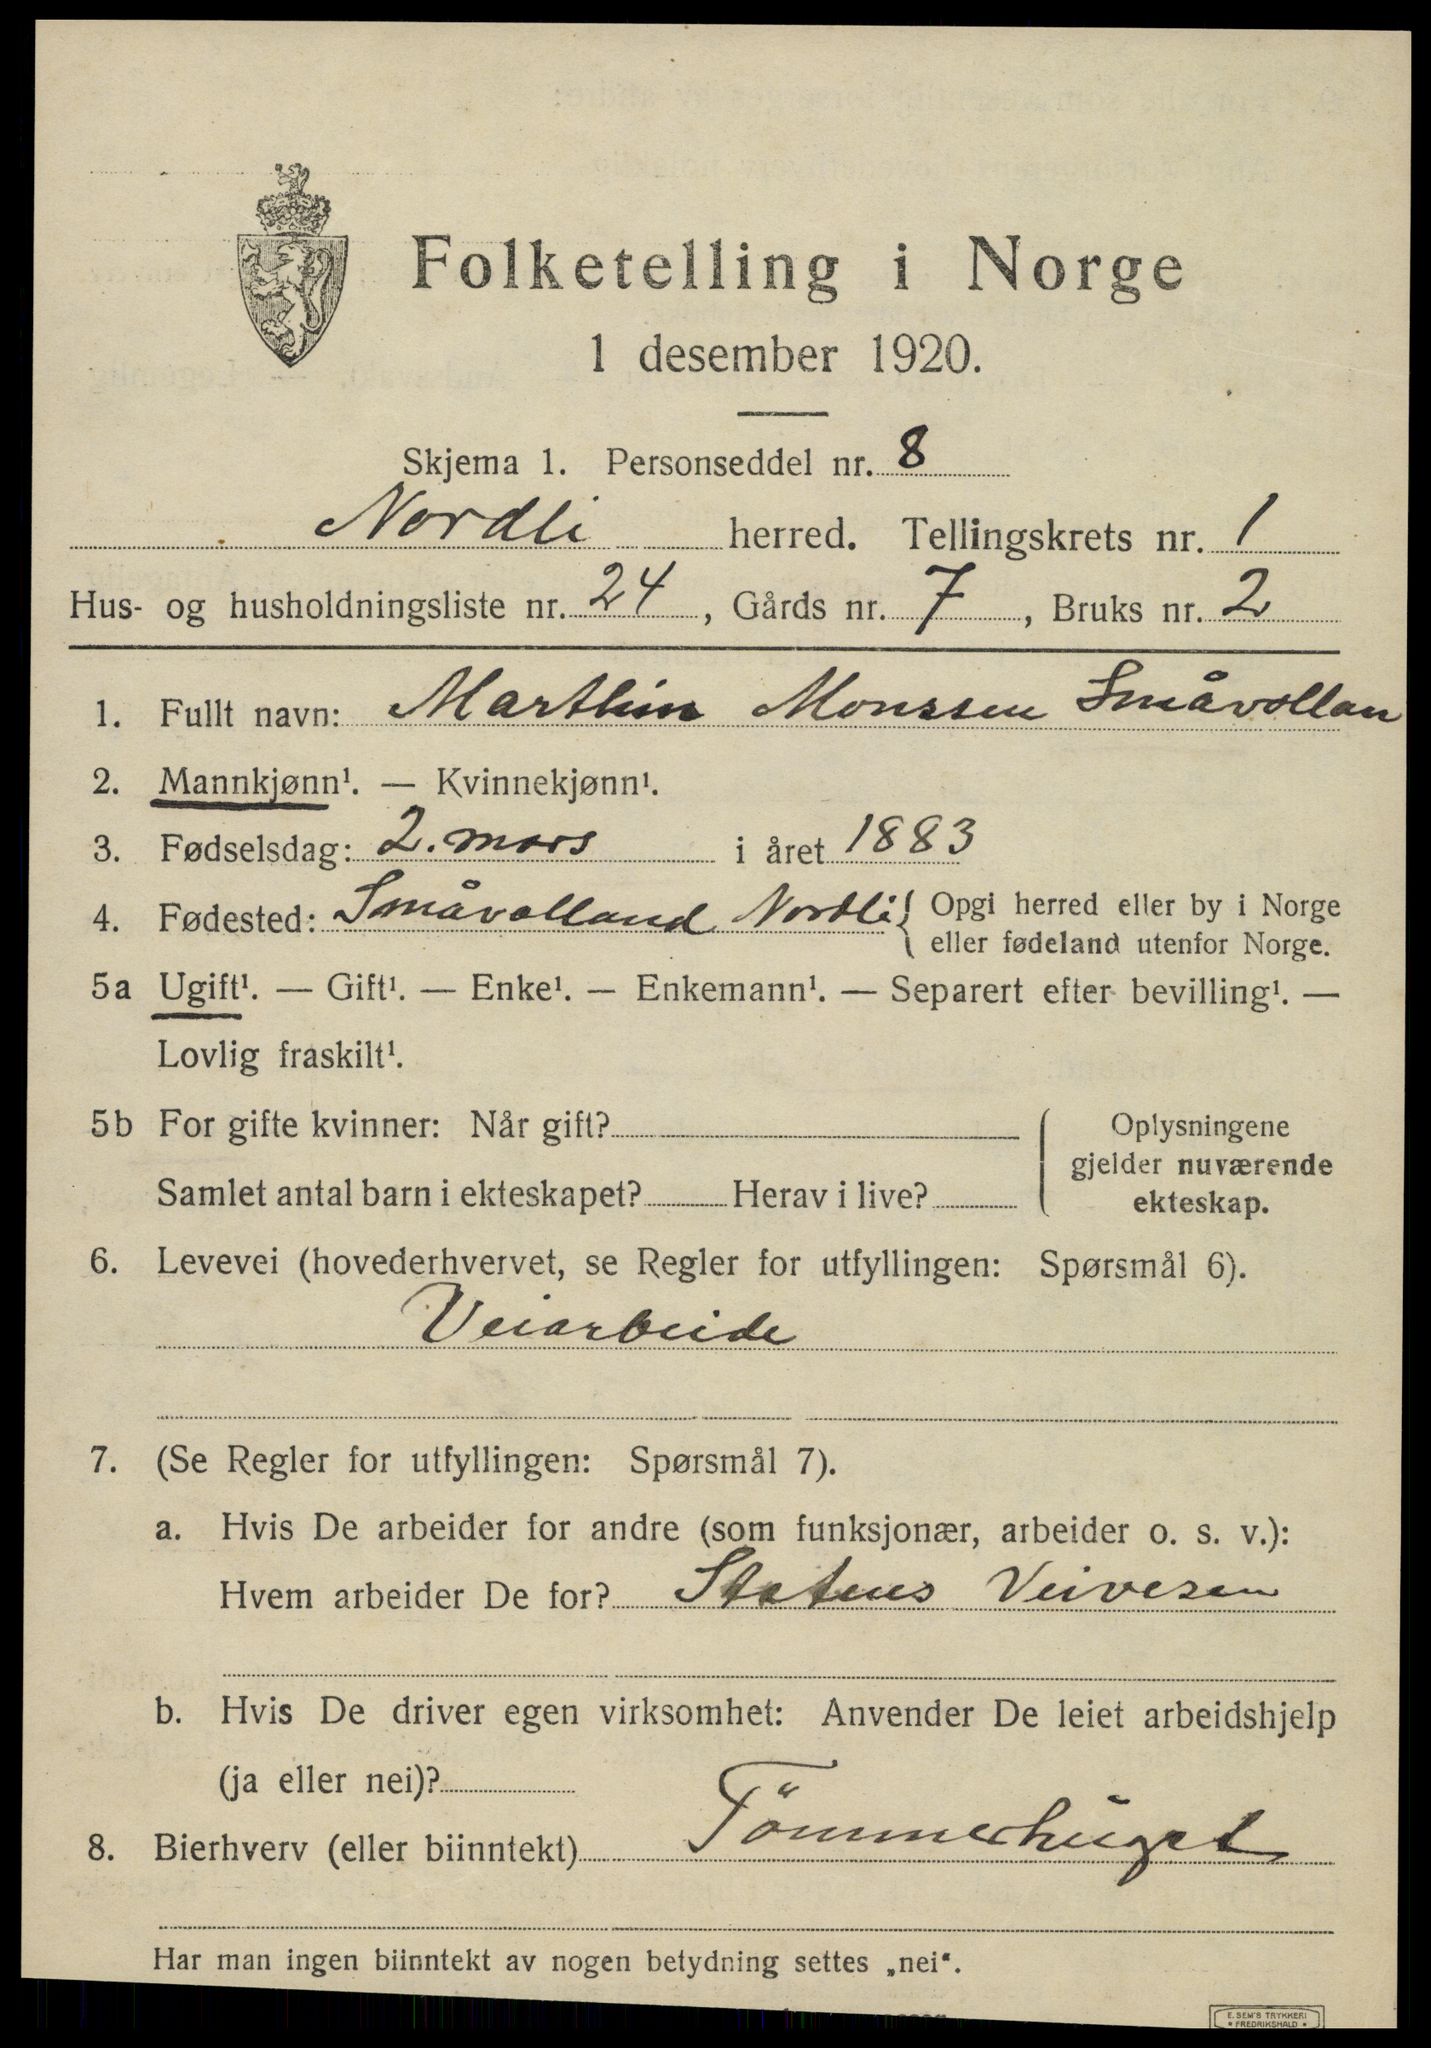 Folketelling i Norge
1 desember 1920.
Skjema 1. Personseddel nr. 8
Nordli herred. Tellingskrets nr. 1
Hus- og husholdningsliste nr. 24, Gårds nr. 7, Bruks nr. 2
1. Fullt navn: Marthin Monssen Småvollan
2. Mannkjønn¹. — Kvinnekjønn¹.
3. Fødselsdag: 2. mars i året 1883
4. Fødested: Småvolland Nordli { Opgi herred eller by i Norge
eller fødeland utenfor Norge.
5a Ugift¹. — Gift¹. — Enke¹. — Enkemann¹. — Separert efter bevilling¹. —
Lovlig fraskilt¹.
5b For gifte kvinner: Når gift?
Samlet antal barn i ekteskapet? Herav i live?
Oplysningene
gjelder nuværende
ekteskap.
6. Levevei (hovederhvervet, se Regler for utfyllingen: Spørsmål 6).
Veiarbeide
7. (Se Regler for utfyllingen: Spørsmål 7).
a. Hvis De arbeider for andre (som funksjonær, arbeider o. s. v.):
Hvem arbeider De for? Statens Veivesen
b. Hvis De driver egen virksomhet: Anvender De leiet arbeidshjelp
(ja eller nei)?
8. Bierhverv (eller biinntekt) Tömmerhugst
Har man ingen biinntekt av nogen betydning settes „nei".
E. SEM'S TRYKKERI
* FREDRIKSHALD *